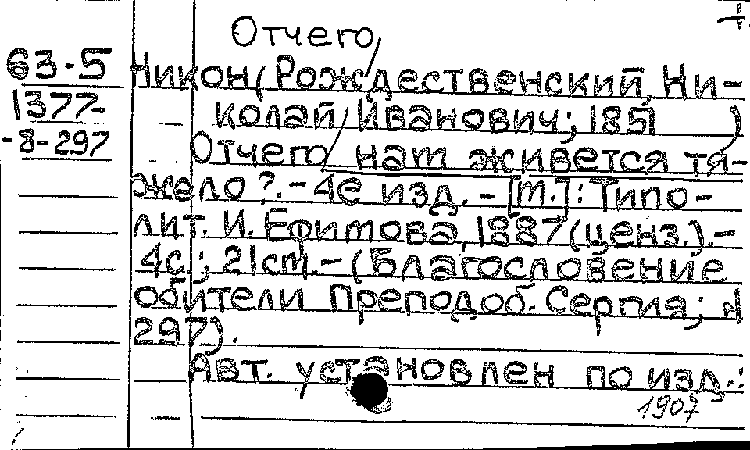 Отчего
63.5 Никон (Рождественский, Ни-
1377- колай Иванович; 1851 )
-8-297 Отчего нам живется тя-
жело?. - 4е изд. - [М.]: Типо-
лит. И. Ефимова, 1887 (ценз.). -
4с.; 21см. - (Благословение
обители Преподоб. Сергия; N
297).
Авт. установлен по изд.:
1907